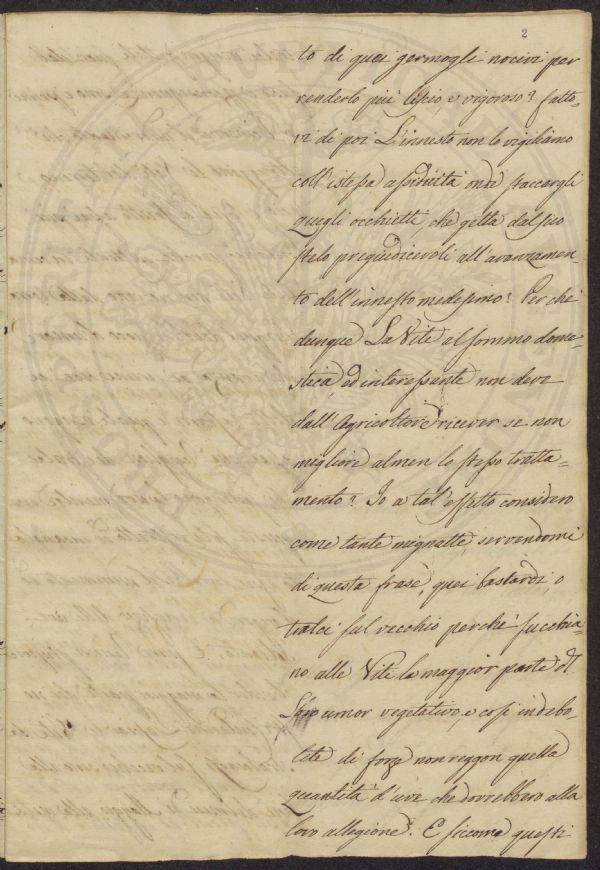 2
to di quei germogli nocivi per
renderlo più liscio, e vigoroso? fatto-
vi di poi L'innesto non lo vigiliamo
coll'istessa assiduità onde staccargli
quegli occhietti, che getta dal suo
stelo pregiudicevoli all'avanzamen-
to dell'innesto medesimo? Perchè
dunque La Vite al sommo dome-
stica, ed interessante non deve
dall'Agricoltore ricever se non
migliore almen lo stesso tratta-
mento? Io a tal'effetto considero
come tante mignatte, servendomi
di questa frase, quei bastardi, o
tralci sul vecchio perchè succhia-
no alle Viti la maggior parte d.
umor vegetativo, e così indebo-
lite di forze non reggon quella
quantità d'uve che dovrebbero alla
loro allegione. E siccome questi